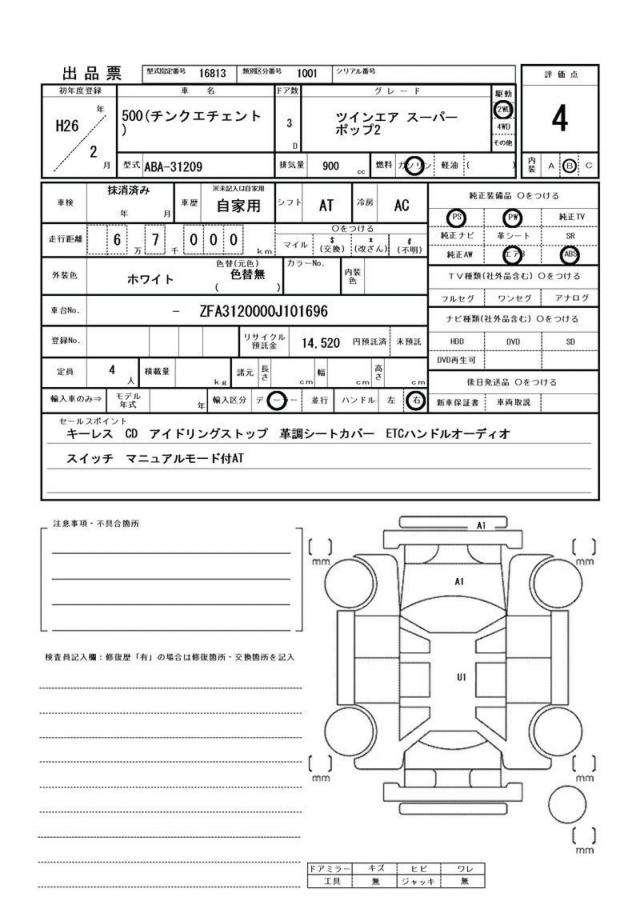 出品票 型式指定番号 16813 類別区分番号 1001 シリアル番号 評価点
初年度登録 車名 ドア数 グレード 駆動
H26 年 2 月
500(チンクエチェント
)
3 D
ツインエア スーパー
ポップ2
2WD
4WD
その他
4
型式 ABA-31209 排気量 900 cc 燃料 ガソリン 軽油 ( ) 内装 A B C
車検 抹消済み 年 月 車歴 ※未記入は自家用 自家用 シフト AT 冷房 AC
純正装備品 〇をつける
PS PW 純正TV
純正ナビ 革シート SR
純正AW エアB ABS
走行距離 6 万 7 千 0 0 0 km
〇をつける
マイル $ (交換) * (改ざん) # (不明)
外装色 ホワイト 色替(元色) 色替無 ( ) カラーNo. 内装色
TV種類(社外品含む) 〇をつける
フルセグ ワンセグ アナログ
車台No. - ZFA3120000J101696
ナビ種類(社外品含む) 〇をつける
HDD DVD SD
DVD再生可
登録No. リサイクル預託金 14,520 円預託済 未預託
定員 4 人 積載量 kg 諸元 長さ cm 幅 cm 高さ cm
後日発送品 〇をつける
新車保証書 車両取説
輸入車のみ⇒ モデル年式 年 輸入区分 ディーラー 並行 ハンドル 左 右
セールスポイント
キーレス CD アイドリングストップ 革調シートカバー ETCハンドルオーディオ
スイッチ マニュアルモード付AT
注意事項・不具合箇所
検査員記入欄:修復歴「有」の場合は修復箇所・交換箇所を記入
A1
A1
U1
[ ] mm
[ ] mm
[ ] mm
[ ] mm
[ ] mm
ドアミラー キズ ヒビ ワレ
工具 無 ジャッキ 無